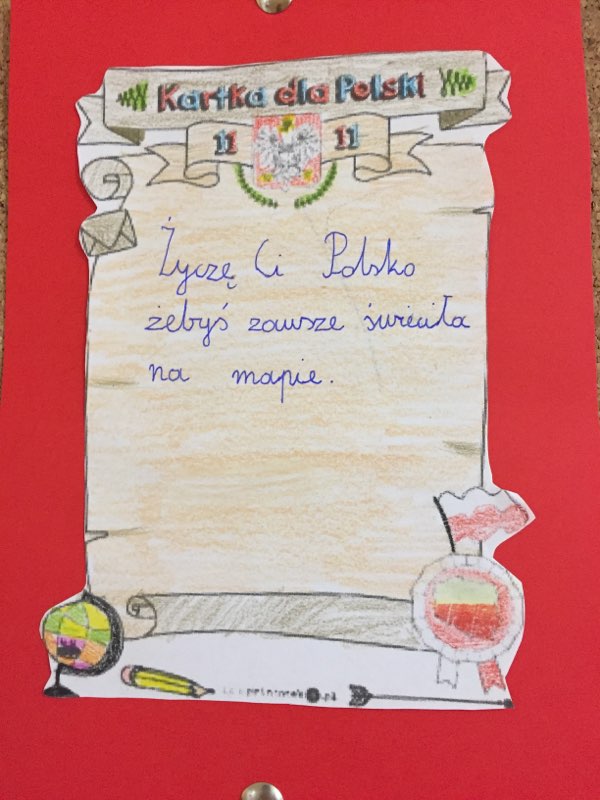 Kartka dla Polski
11 11
Życzę Ci Polsko
żebyś zawsze świeciła
na mapie.